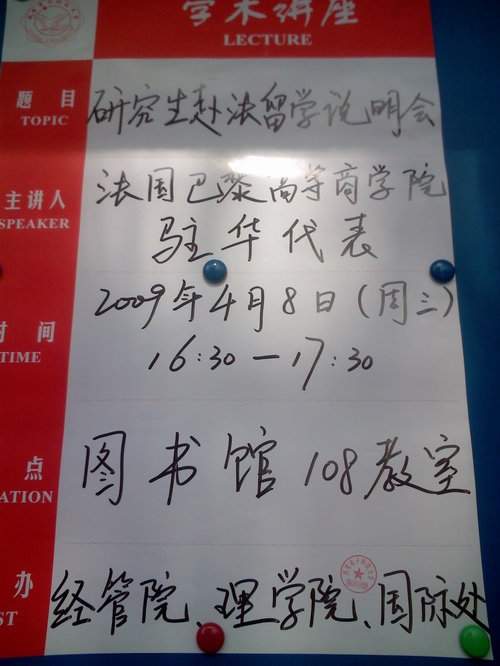 学术讲座
LECTURE
题 目
TOPIC
研究生赴法留学说明会
主讲人
SPEAKER
法国巴黎高等商学院
驻华代表
时 间
TIME
2009年4月8日(周三)
16:30—17:30
点
ATION
图书馆 108教室
办
ST
经管院、理学院、国际处